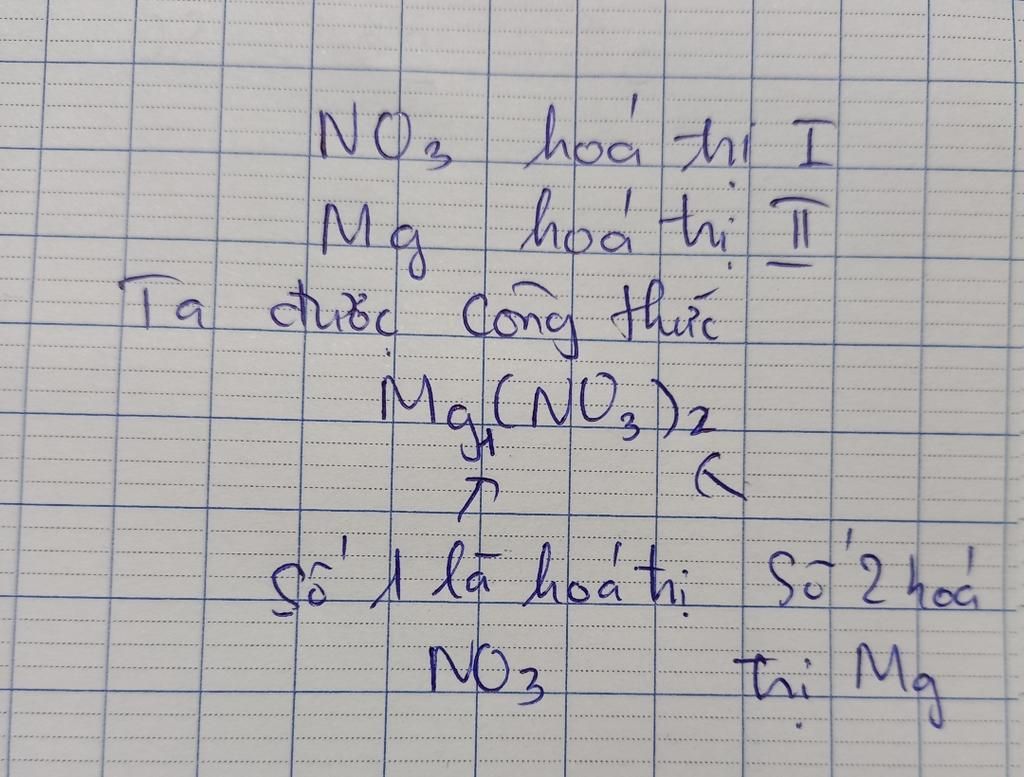 NO₃ hoá trị I
Mg hoá trị II
Ta được công thức
Mg₁(NO₃)₂
Số 1 là hoá trị Số 2 hoá
NO₃ trị Mg